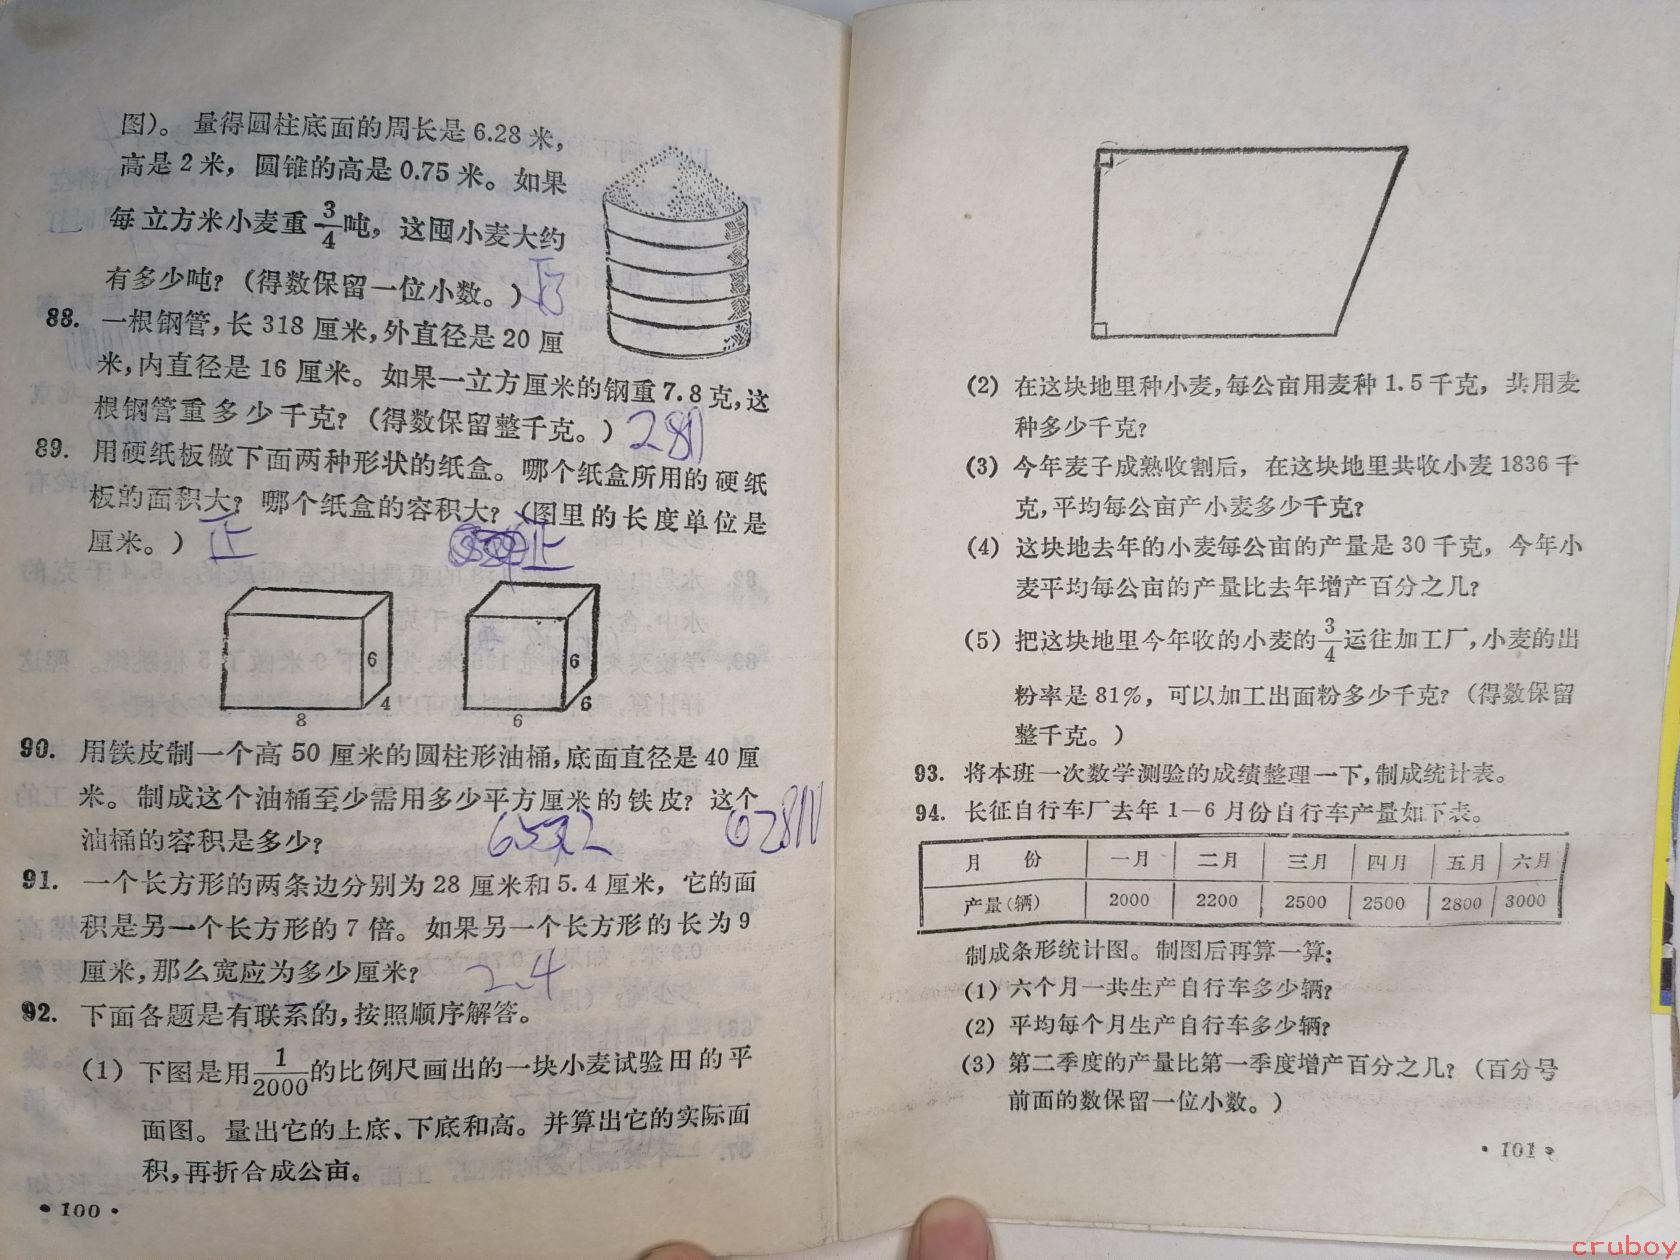 图)。量得圆柱底面的周长是6.28米，
高是2米，圆锥的高是0.75米。如果
每立方米小麦重3/4吨，这囤小麦大约
有多少吨？(得数保留一位小数。)
88. 一根钢管，长318厘米，外直径是20厘
米，内直径是16厘米。如果一立方厘米的钢重7.8克，这
根钢管重多少千克？(得数保留整千克。)
89. 用硬纸板做下面两种形状的纸盒。哪个纸盒所用的硬纸
板的面积大？哪个纸盒的容积大？(图里的长度单位是
厘米。) 正 正
6 6
4 6
8 6
90. 用铁皮制一个高50厘米的圆柱形油桶，底面直径是40厘
米。制成这个油桶至少需用多少平方厘米的铁皮？这个
油桶的容积是多少？
91. 一个长方形的两条边分别为28厘米和5.4厘米，它的面
积是另一个长方形的7倍。如果另一个长方形的长为9
厘米，那么宽应为多少厘米？ 2.4
92. 下面各题是有联系的，按照顺序解答。
(1) 下图是用1/2000的比例尺画出的一块小麦试验田的平
面图。量出它的上底、下底和高。并算出它的实际面
积，再折合成公亩。
•100•
(2) 在这块地里种小麦，每公亩用麦种1.5千克，共用麦
种多少千克？
(3) 今年麦子成熟收割后，在这块地里共收小麦1836千
克，平均每公亩产小麦多少千克？
(4) 这块地去年的小麦每公亩的产量是30千克，今年小
麦平均每公亩的产量比去年增产百分之几？
(5) 把这块地里今年收的小麦的3/4运往加工厂，小麦的出
粉率是81%，可以加工出面粉多少千克？(得数保留
整千克。)
93. 将本班一次数学测验的成绩整理一下，制成统计表。
94. 长征自行车厂去年1—6月份自行车产量如下表。
月份 一月 二月 三月 四月 五月 六月
产量(辆) 2000 2200 2500 2500 2800 3000
制成条形统计图。制图后再算一算：
(1) 六个月一共生产自行车多少辆？
(2) 平均每个月生产自行车多少辆？
(3) 第二季度的产量比第一季度增产百分之几？(百分号
前面的数保留一位小数。)
•101•
cruboy